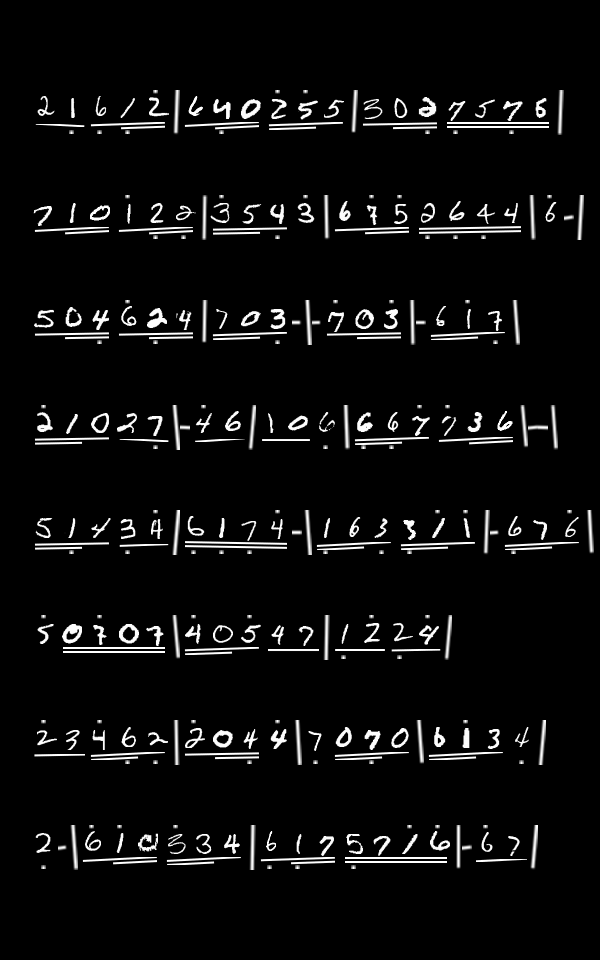 2 1 6 1 2 | 6 4 0 2 5 5 | 3 0 2 7 5 7 6 |
7 1 0 1 2 2 | 3 5 4 3 | 6 7 5 2 6 4 4 | 6 - |
5 0 4 6 2 4 | 7 0 3 - | - 7 0 3 | - 6 1 7 |
2 1 0 2 7 | - 4 6 | 1 0 6 | 6 6 7 7 3 6 | - |
5 1 4 3 4 | 6 1 7 4 - | 1 6 3 3 1 1 | - 6 7 6 |
5 0 7 0 7 | 4 0 5 4 7 | 1 2 2 4 |
2 3 4 6 2 | 2 0 4 4 | 7 0 7 0 | 6 1 3 4 |
2 - | 6 1 0 3 3 4 | 6 1 7 5 7 1 6 | - 6 7 |